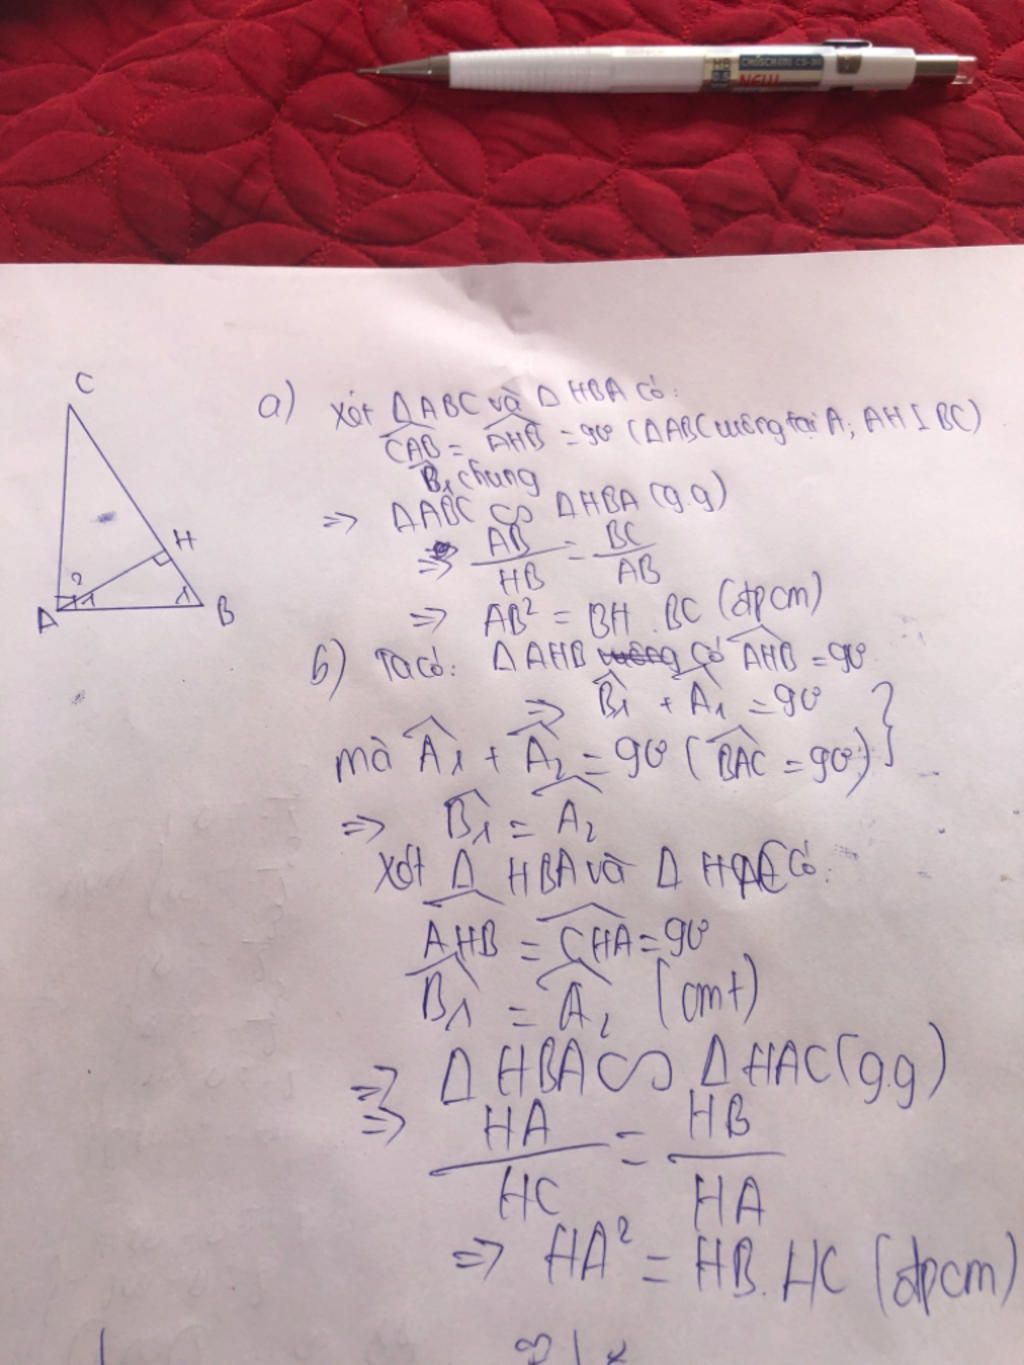 CHOSCH CS-30
HB
0.5
NEW
C
H
A
2
1
1
B
a) Xét ΔABC và ΔHBA có:
CAB = AHB = 90° (ΔABC vuông tại A; AH ⊥ BC)
B1 chung
=> ΔABC ∽ ΔHBA (g.g)
=> AB/HB = BC/AB
=> AB² = BH.BC (đpcm)
b) Ta có: ΔAHB có AHB = 90°
=> B1 + A1 = 90°
mà A1 + A2 = 90° (BAC = 90°) }
=> B1 = A2
Xét Δ HBA và Δ HAC có:
AHB = CHA = 90°
B1 = A2 (cmt)
=> Δ HBA ∽ ΔHAC (g.g)
=> HA/HC = HB/HA
=> HA² = HB.HC (đpcm)